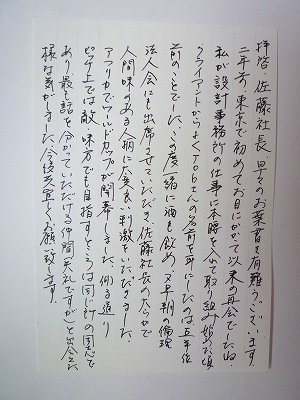 拝啓、佐藤社長、早々のお葉書き有難うございます。
二年前、東京で初めてお目にかかって以来の再会でしたね。
私が設計事務所の仕事に本腰を入れて取り組み始めた頃
クライアントからよくJobさんの名前を耳にしたのは五年位
前のことでした。この度一緒に酒も飲め、又早朝の倫理
法人会にも出席させていただき、佐藤社長の大らかで
人間味のある人柄に大変良い刺激をいただきました。
アフリカでワールドカップが開幕しました。例る通り
ビジネス上では敵・味方でも目指すところは同じ計の同志で
あり、最も話を分かっていただける仲間(失礼ですが)と出会えた
様な気がしました。今後共宜しくお願い致します。